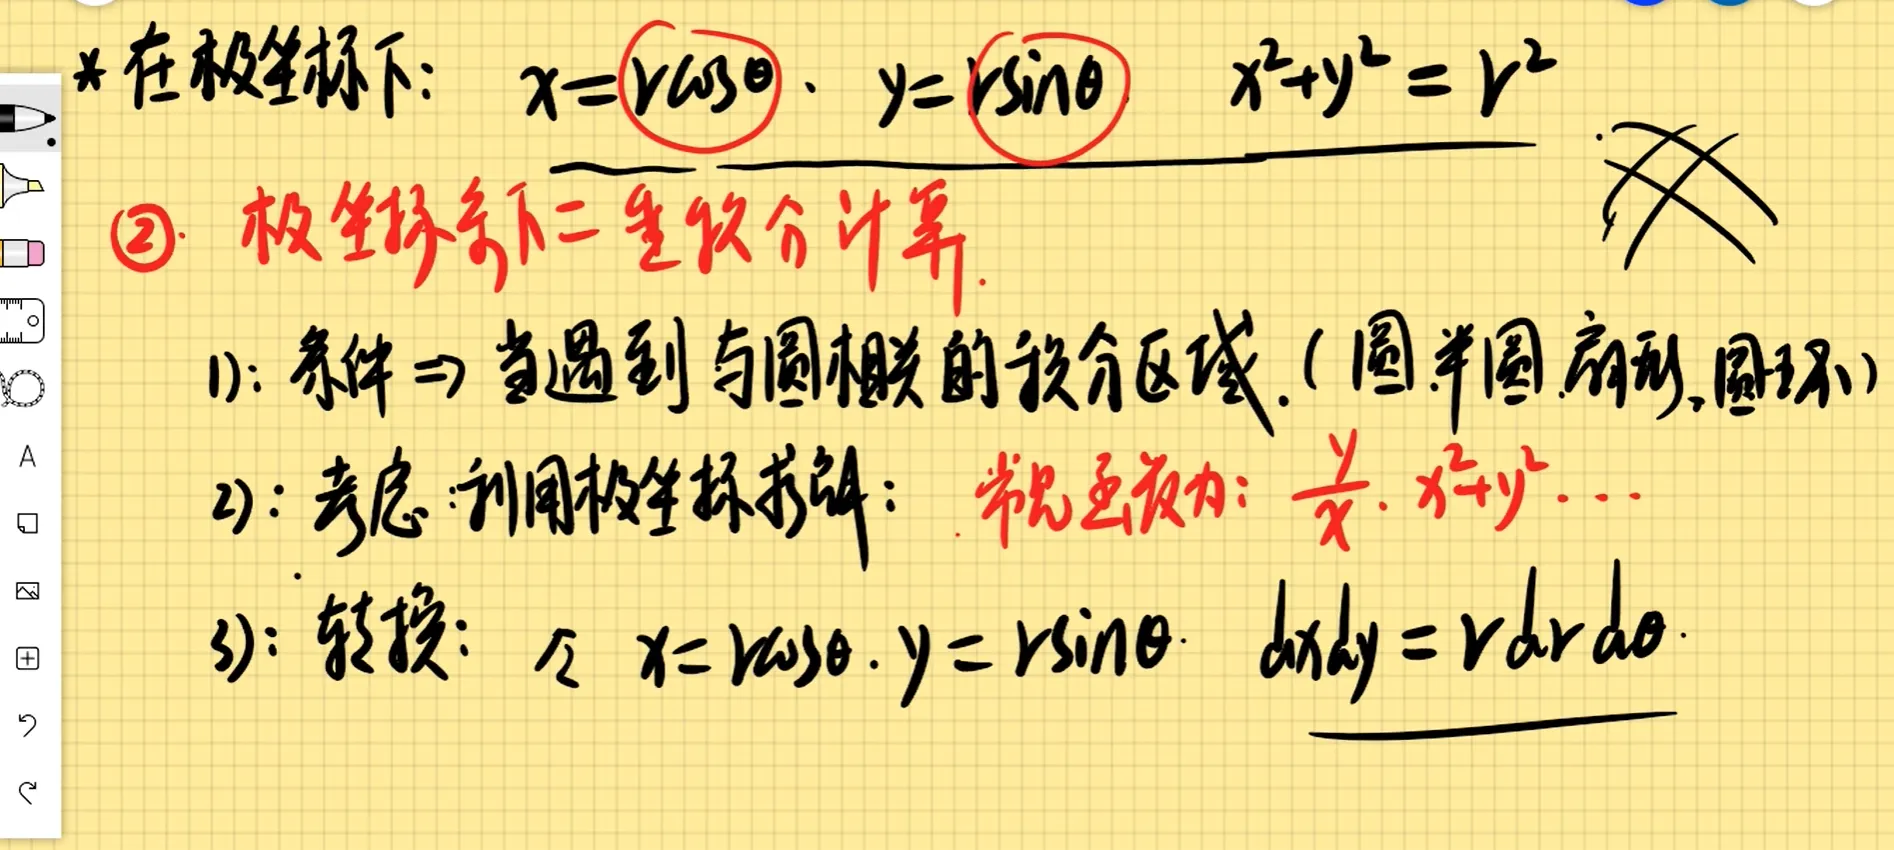 * 在极坐标下: x=rcosθ. y=rsinθ. x²+y²=r²
②. 极坐标系下二重积分计算.
1): 条件⇒当遇到与圆相关的积分区域.(圆.半圆.扇形、圆环)
2): 考虑:利用极坐标求解: 常见函数为: y/x. x²+y²...
3): 转换: 令 x=rcosθ. y=rsinθ. dxdy=rdrdθ.
A